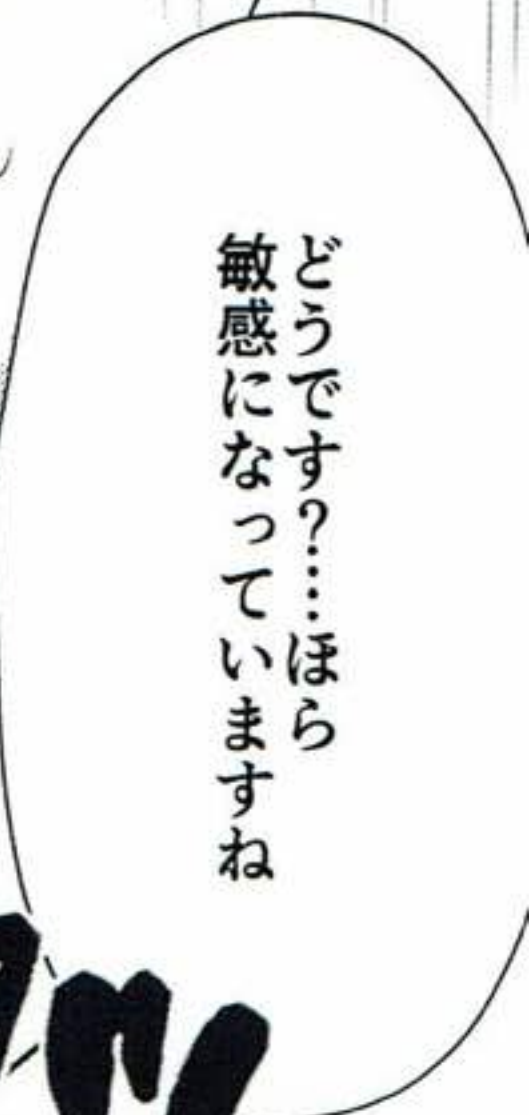 どうです？……ほら
敏感になっていますね